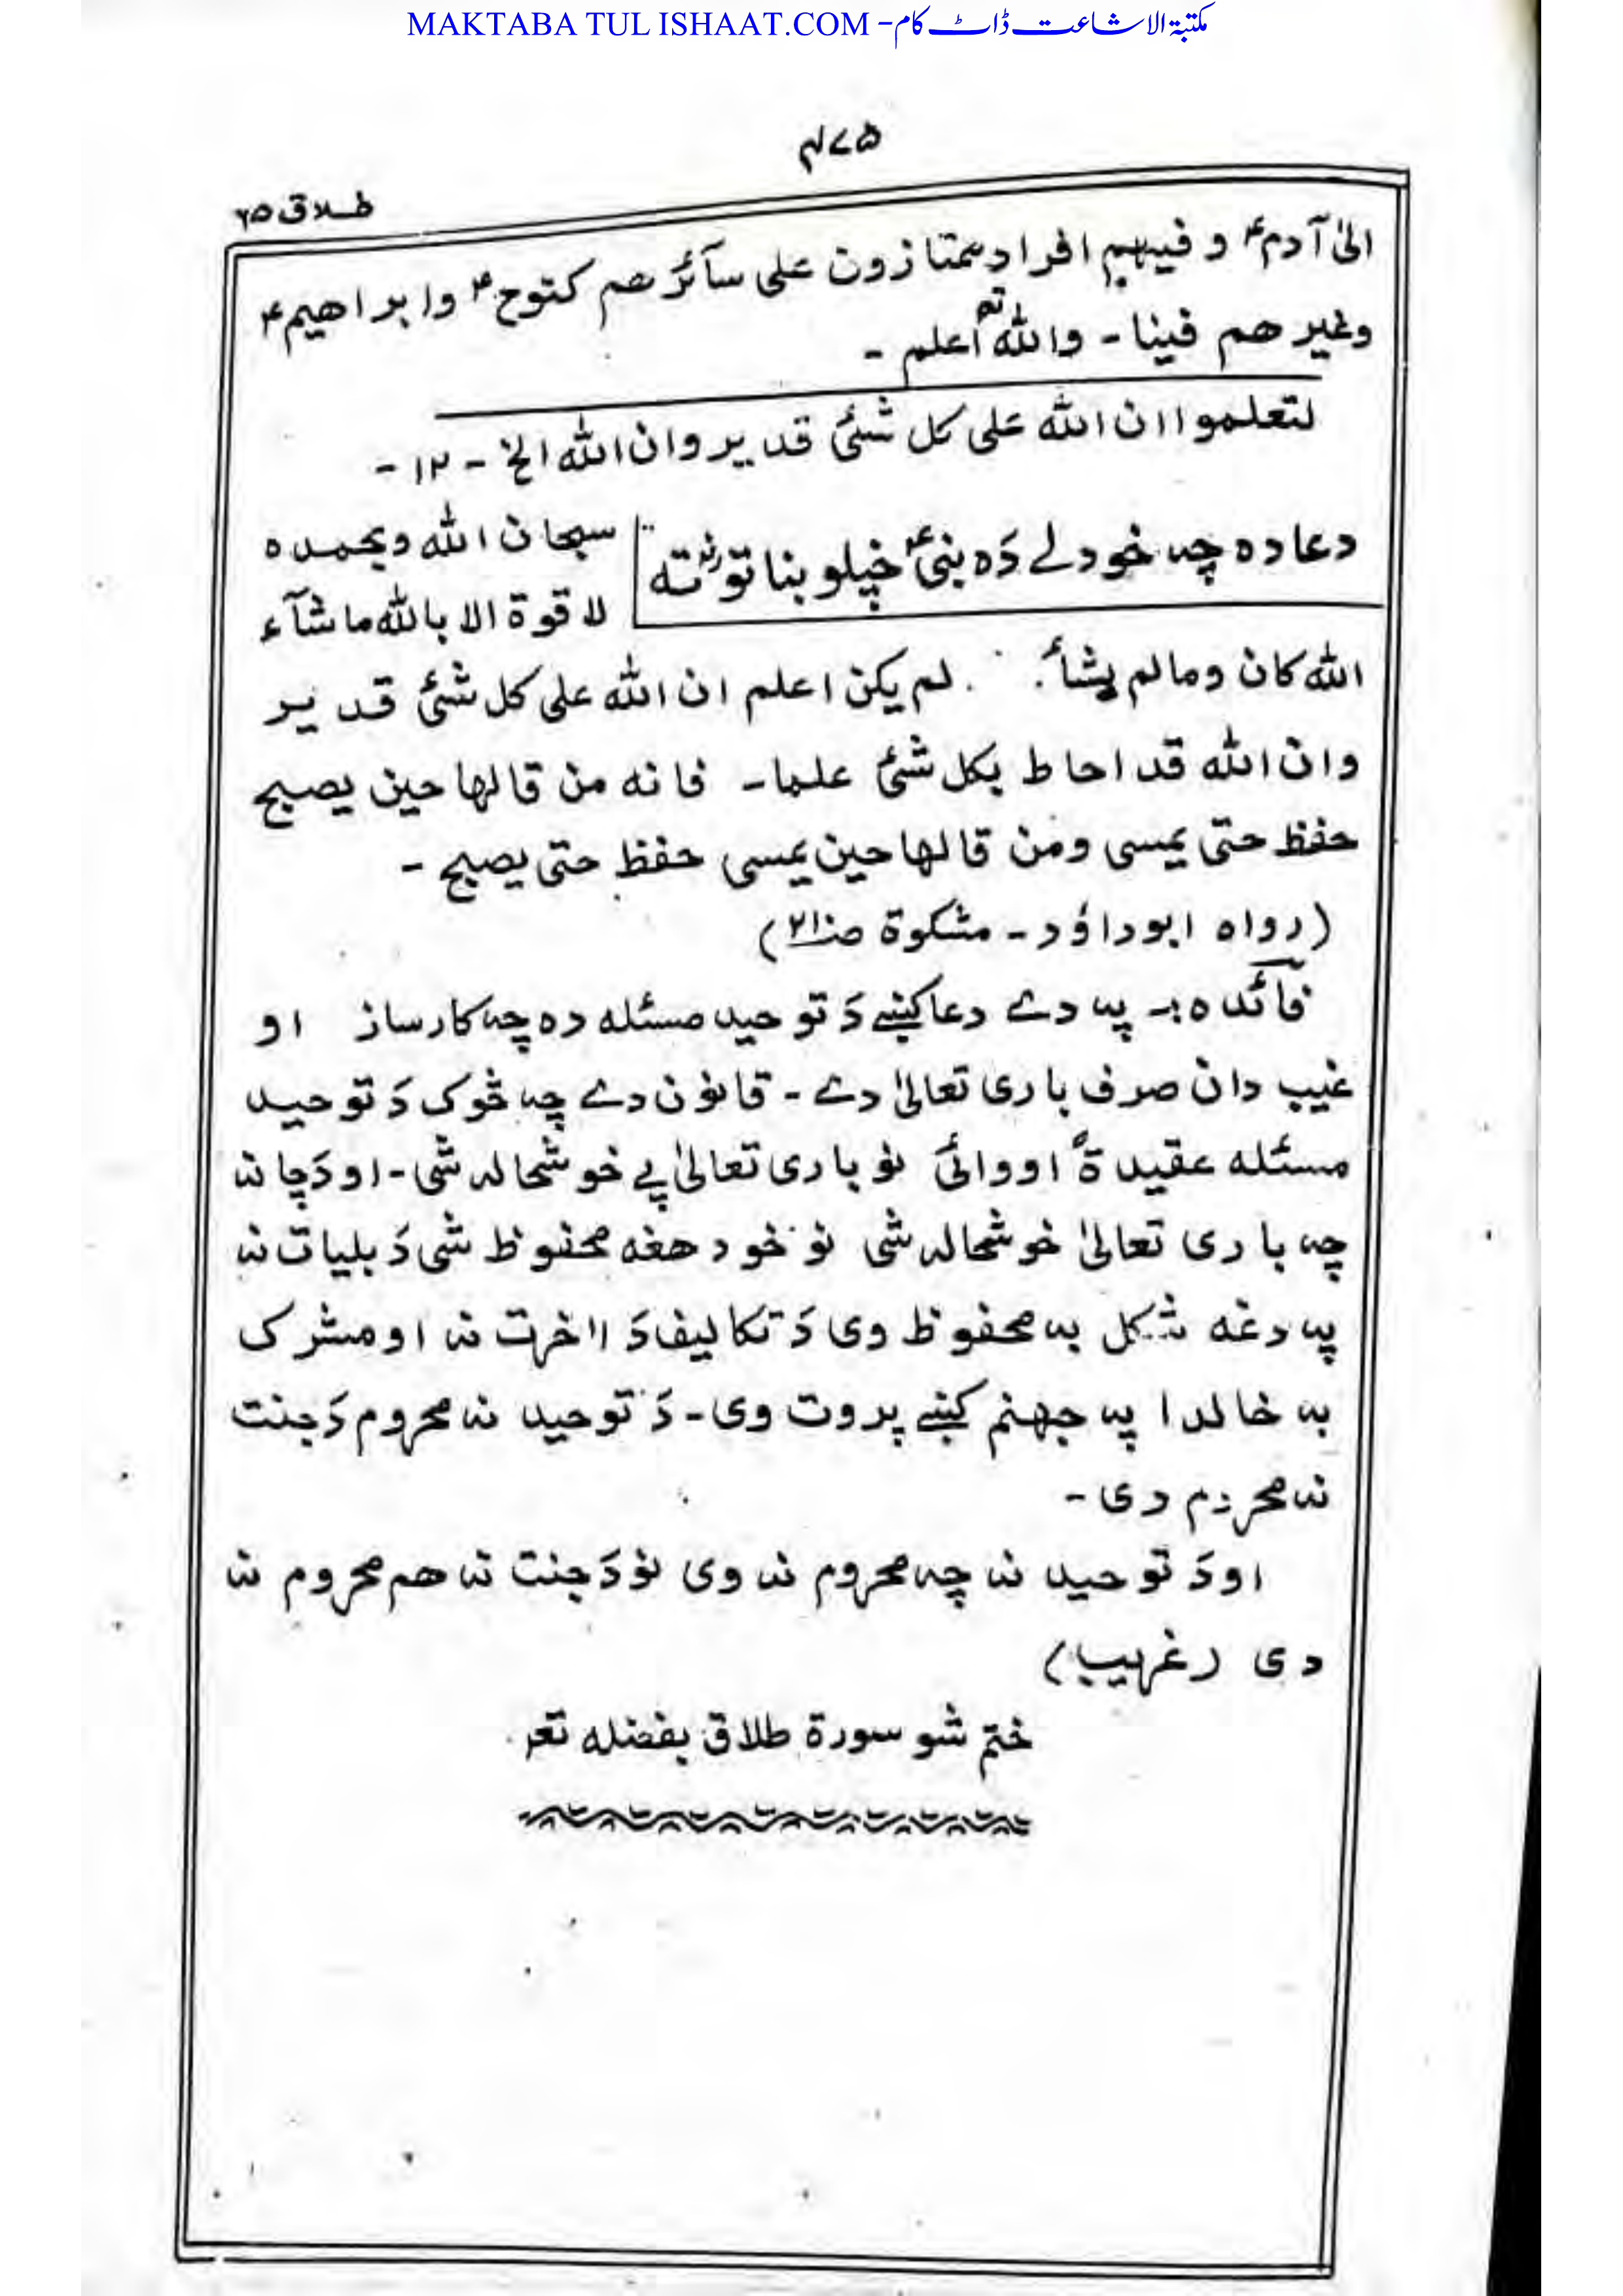 MAKTABA TUL ISHAAT.COM - مکتبۃ الاشاعت ڈاٹ کام
۴۷۵
طلاق ۶۵
الیٰ آدم ؑ و فیہم افراد ممتازون علی سآئرھم کنوح ؑ وابراھیم ؑ
وغیرھم فینا - واللہ تعہ اعلم -
لتعلموا ان اللہ علی کل شئی قدیر وان اللہ الخ - ۱۲ -
دعا دہ چہ خودلے دَہ بنی ؑ خپلو بناتو رضہ تہ
سبحان اللہ وبحمدہ
لا قوۃ الا باللہ ماشآء
اللہ کان ومالم یشأ . لم یکن اعلم ان اللہ علی کل شئی قدیر
وان اللہ قد احاط بکل شئی علما - فانہ من قالھا حین یصبح
حفظ حتی یمسی ومن قالھا حین یمسی حفظ حتی یصبح -
(رواہ ابوداؤد - مشکوۃ صـ ۲۱)
فآئدہ :- پہ دے دعا کښے دَ توحید مسئلہ دہ چہ کارساز او
غیب دان صرف باری تعالیٰ دے - قانون دے چہ څوک دَ توحید
مسئلہ عقیدۃً اووائی نو باری تعالیٰ پے خوشحالہ شی - او دَچا نہ
چہ باری تعالیٰ خوشحالہ شی نو خود ھغہ محفوظ شی دَ بلیات نہ
پہ دغہ شکل بہ محفوظ وی دَ تکالیف دَ اٰخرت نہ او مشرک
بہ خالدا پہ جھنم کښے پروت وی - دَ توحید نہ محروم دَ جنت
نہ محروم دی -
او دَ توحید نہ چہ محروم نہ وی نو دَ جنت نہ ھم محروم نہ
دی (غریب)
ختم شو سورۃ طلاق بفضلہ تعہ